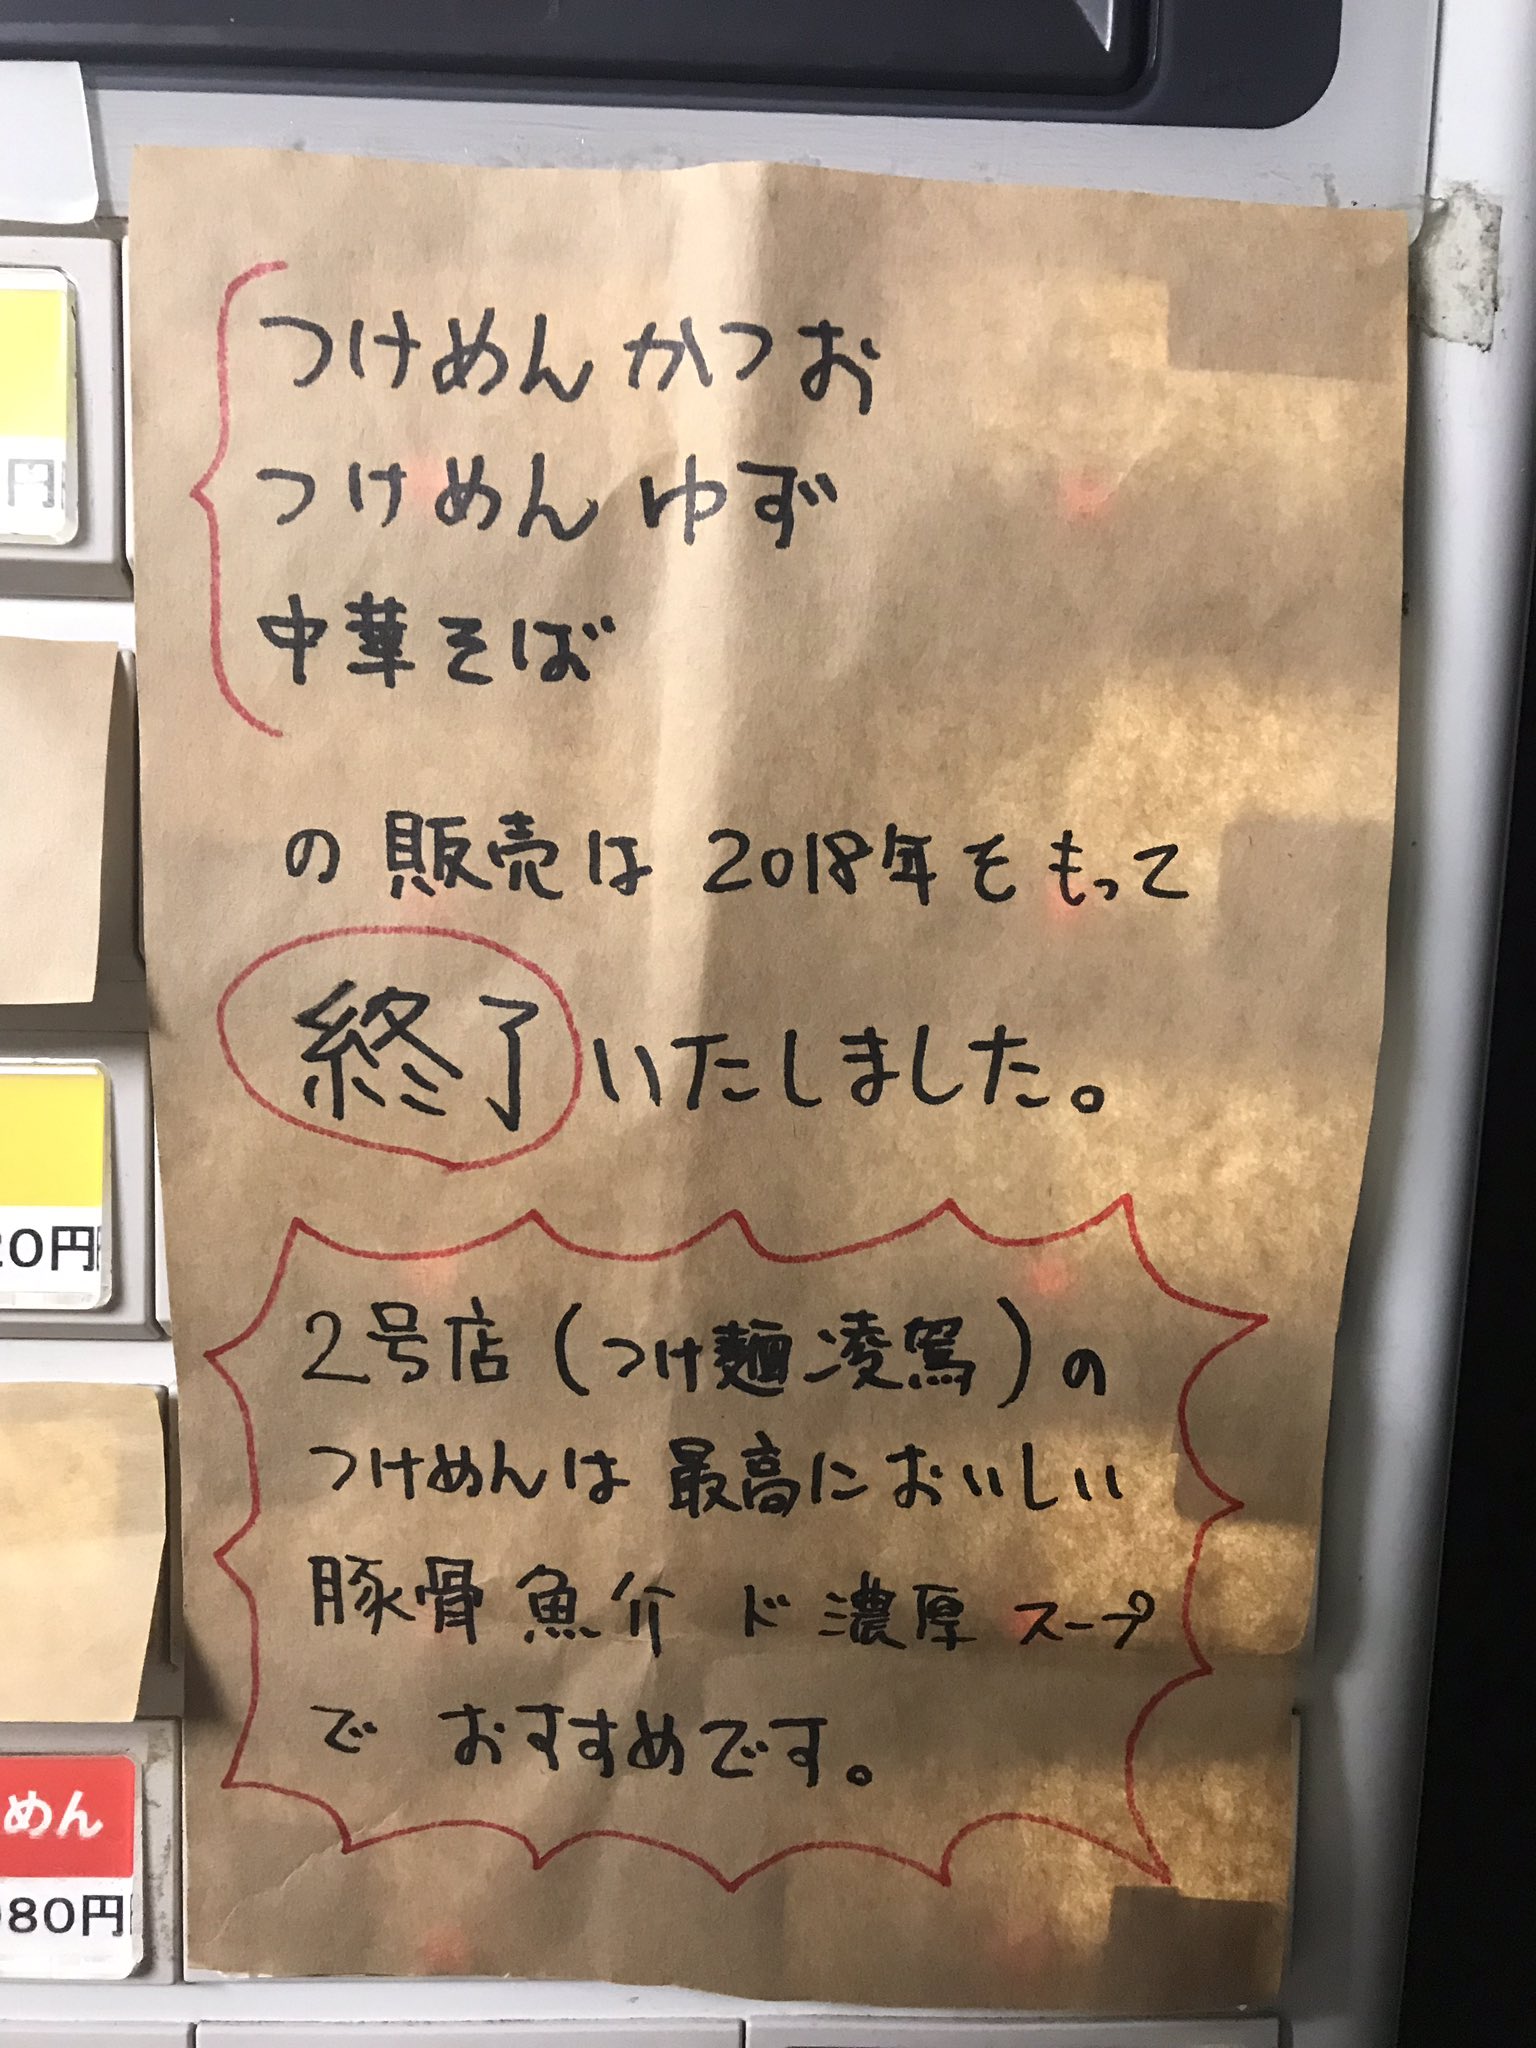 つけめん かつお
つけめん ゆず
中華そば
の 販売は 2018年をもって
終了いたしました。
2号店(つけ麺 凌駕)の
つけめんは 最高においしい
豚骨 魚介 ド濃厚 スープ
で おすすめです。
円
20円
めん
080円